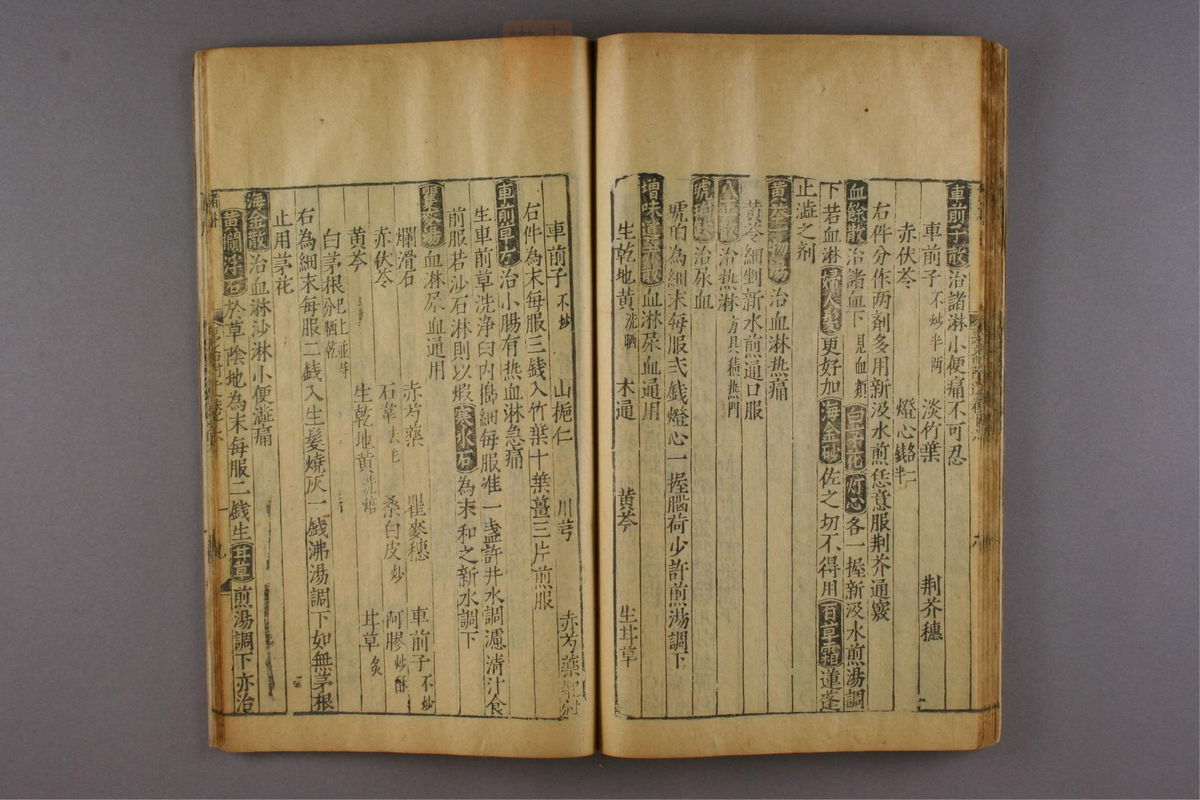 車前子散治諸淋小便痛不可忍
車前子不炒半两 淡竹葉 荆芥穗
赤伏苓 燈心 半
右件分作两劑多用新汲水煎恁意服荆芥通竅
血餘散治諸血下見血類 灯心各一握新汲水煎湯調
下若血淋 更好加海金砂佐之切不得用百草霜蓮蓬
止澁之剤
治血淋热痛
黄芩細剉新水煎通口服
八正散治热淋方具積热門
琥珀散治尿血
琥珀為細末每服弍銭燈心一握腦荷少許煎湯調下
増味導赤散血淋尿血通用
生乾地黄洗晒 木通 黄芩 生甘草
車前子不炒 山梔仁 川芎 赤芍藥
右件為末每服三銭入竹葉十葉薑三片煎服
車前草方治小腸有热血淋急痛
生車前草洗浄臼内擣細每服准一盞許井水調濾清汁食
前服若沙石淋則以煆寒水石為末和之新水調下
瞿麥湯血淋尿血通用
爛滑石 赤芍藥 瞿麥穗 車前子不炒
赤伏苓 石韋去毛 桑白皮炒 阿膠炒酥
黄芩 生乾地黄洗焙 甘草炙
白茅根 已上並等分晒乾
右為細末每服二銭入生髮燒灰一銭沸湯調下如無茅根
止用茅花
海金散治血淋沙淋小便澁痛
黄爛浮石於草陰地為末每服二銭生甘草煎湯調下亦治